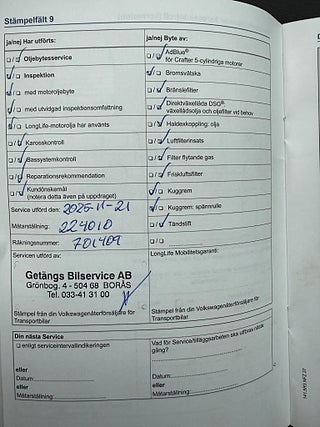 Stämpelfält 9
ja/nej Har utförts:
Oljebytesservice
Inspektion
med motoroljebyte
med utvidgad inspektionsomfattning
LongLife-motorolja har använts
Karosskontroll
Bassystemkontroll
Reparationsrekommendation
Kundönskemål
(notera detta även på uppdraget)
Service utförd den: 2025-11-21
Mätarställning: 224010
Räkningsnummer: 701409
Servicen utförd av:
Getängs Bilservice AB
Grönbog. 4 - 504 68 BORÅS
Tel. 033-41 31 00
Stämpel från din Volkswagenåterförsäljare för
Transportbilar
ja/nej Byte av:
AdBlue®
för Crafter 5-cylindriga motorer
Bromsvätska
Bränslefilter
Direktväxellåda DSG®:
växellådsolja och oljefilter vid behov
Haldexkoppling: olja
Luftfilterinsats
Filter flytande gas
Friskluftsfilter
Kuggrem
Kuggrem: spännrulle
Tändstift
LongLife Mobilitetsgaranti:
Stämpel från din Volkswagenåterförsäljare för
Transportbilar
Din nästa Service
enligt serviceintervallindikeringen
eller
Datum:
eller
Mätarställning:
Vad för Service/tilläggsarbeten ska utföras nästa
gång?
eller
Datum:
Mätarställning: